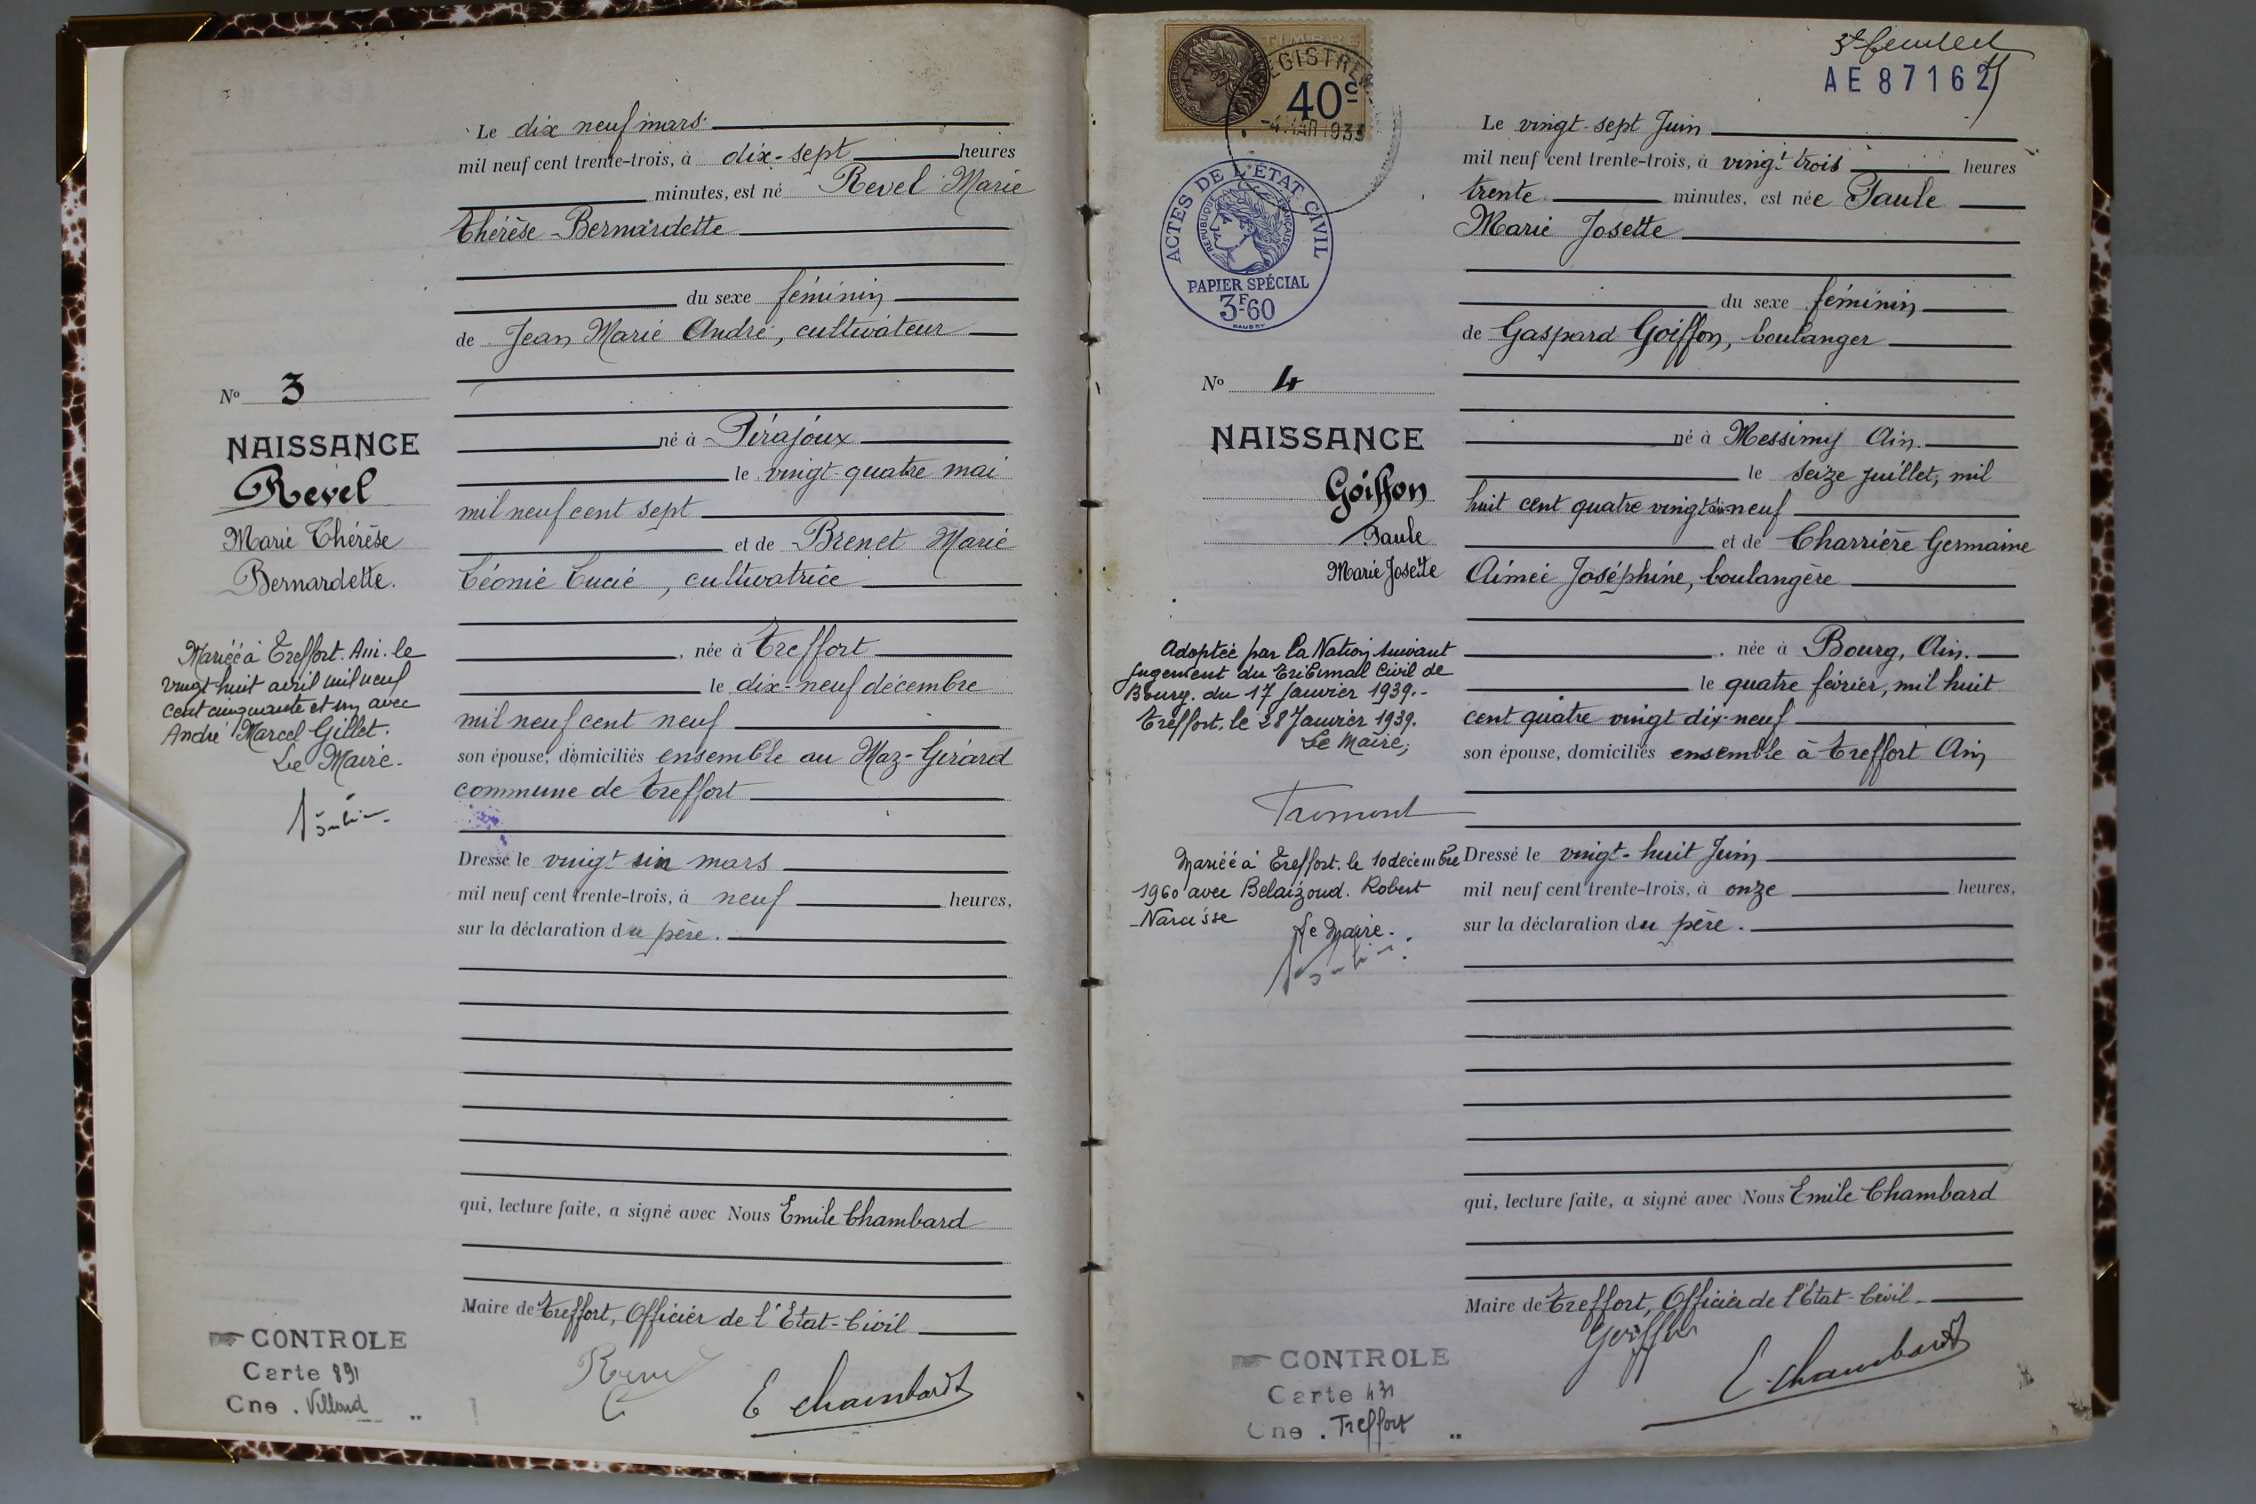 Le dix neuf mars
mil neuf cent trente-trois, à dix-sept heures
minutes, est né Revel Marie
Thérèse-Bernardette
du sexe féminin
de Jean Marie André, cultivateur
né à Pirajoux
le vingt-quatre mai
mil neuf cent sept
et de Brenet Marie
Léonie Lucie, cultivatrice
, née à Treffort
le dix-neuf décembre
mil neuf cent neuf
son épouse, domiciliés ensemble au Maz-Girard
commune de Treffort
Dressé le vingt six mars
mil neuf cent trente-trois, à neuf heures,
sur la déclaration du père.
qui, lecture faite, a signé avec Nous Emile Chambard
Maire de Treffort, Officier de l'Etat-Civil
Revel
E Chambard
No 3
NAISSANCE
Revel
Marie Thérèse
Bernardette.
Mariée à Treffort. Ain. le
vingt huit avril mil neuf
cent cinquante et un avec
André Marcel Gillet.
Le Maire.
CONTROLE
Carte 891
Cne. Villard
TIMBRE
40c
ACTES DE L'ÉTAT CIVIL
RÉPUBLIQUE FRANÇAISE
PAPIER SPÉCIAL
3F60
AE 87162
Le vingt-sept Juin
mil neuf cent trente-trois, à vingt trois heures
trente minutes, est née Paule
Marie Josette
du sexe féminin
de Gaspard Goiffon, boulanger
né à Messimy Ain.
le seize juillet, mil
huit cent quatre vingt dix neuf
et de Charrière Germaine
Aimée Joséphine, boulangère
, née à Bourg, Ain.
le quatre février, mil huit
cent quatre vingt dix-neuf
son épouse, domiciliés ensemble à Treffort Ain
Dressé le vingt-huit Juin
mil neuf cent trente-trois, à onze heures,
sur la déclaration du père.
qui, lecture faite, a signé avec Nous Emile Chambard
Maire de Treffort, Officier de l'Etat-Civil.
Goiffon
E. Chambard
No 4
NAISSANCE
Goiffon
Paule
Marie Josette
Adoptée par la Nation suivant
Jugement du Tribunal Civil de
Bourg. du 17 Janvier 1939.-
Treffort. le 28 Janvier 1939.
Le Maire,
Tremont
Mariée à Treffort. le 10 décembre
1960 avec Belaizoud. Robert
Narcisse
Le Maire.
CONTROLE
Carte 431
Cne. Treffort